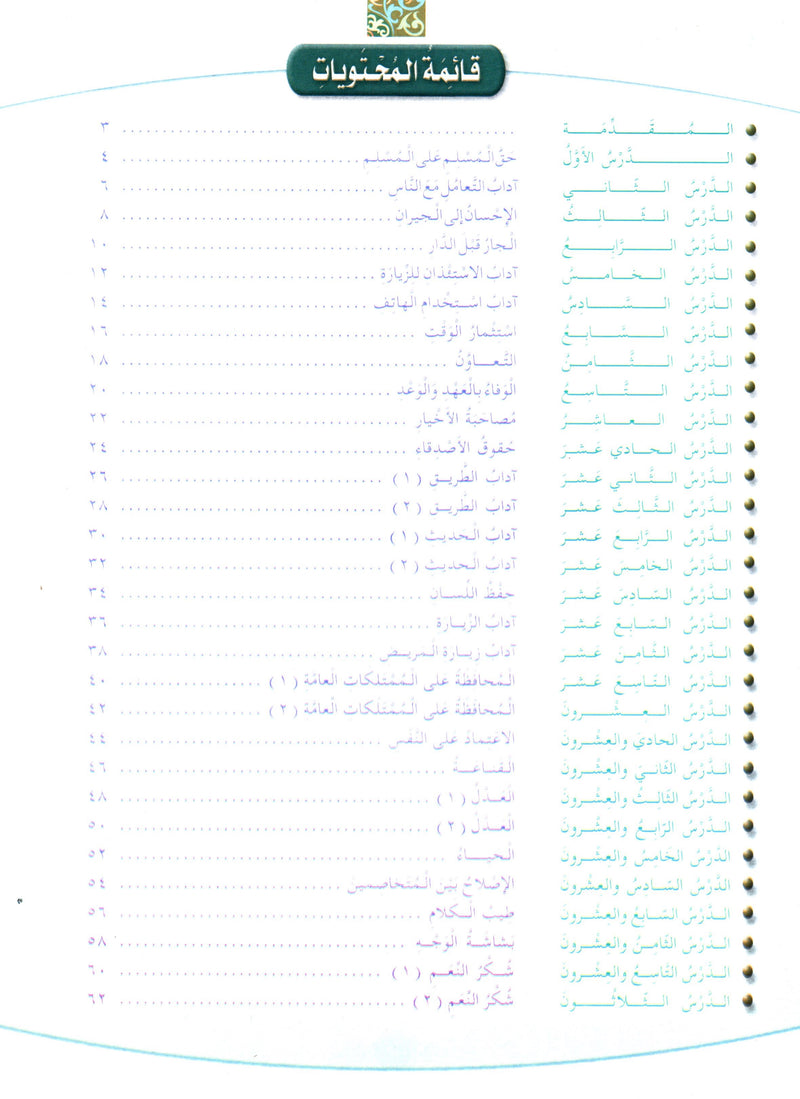 قَائِمَةُ الْمُحْتَوَيَاتِ
الـمُـقَـدِّمَـة ........ ٣
الـدَّرْسُ الأَوَّلُ حَقُّ الْـمُسْلِمِ عَلَى الْـمُسْلِمِ ........ ٤
الـدَّرْسُ الـثَّـانـي آدَابُ التَّعَامُلِ مَعَ النَّاسِ ........ ٦
الـدَّرْسُ الـثَّـالِـثُ الإِحْسَانُ إِلَى الْـجِيرَانِ ........ ٨
الـدَّرْسُ الـرَّابِـعُ الْـجَارُ قَبْلَ الدَّارِ ........ ١٠
الـدَّرْسُ الـخَـامِـسُ آدَابُ الاسْتِئْذَانِ لِلزِّيَارَةِ ........ ١٢
الـدَّرْسُ الـسَّـادِسُ آدَابُ اسْـتِـخْدَامِ الْهَاتِفِ ........ ١٤
الـدَّرْسُ الـسَّـابِـعُ اسْتِثْمَارُ الْوَقْتِ ........ ١٦
الـدَّرْسُ الـثَّـامِـنُ التَّـعَـاوُنُ ........ ١٨
الـدَّرْسُ الـتَّـاسِـعُ الْوَفَاءُ بِالْعَهْدِ وَالْوَعْدِ ........ ٢٠
الـدَّرْسُ الـعَـاشِـرُ مُصَاحَبَةُ الأَخْيَارِ ........ ٢٢
الـدَّرْسُ الـحَـادِي عَـشَـرَ حُقُوقُ الأَصْدِقَاءِ ........ ٢٤
الـدَّرْسُ الـثَّـانِـي عَـشَـرَ آدَابُ الطَّرِيـقِ ( ١ ) ........ ٢٦
الـدَّرْسُ الـثَّـالِـثَ عَـشَـرَ آدَابُ الطَّرِيـقِ ( ٢ ) ........ ٢٨
الـدَّرْسُ الـرَّابِـعَ عَـشَـرَ آدَابُ الْـحَدِيثِ ( ١ ) ........ ٣٠
الـدَّرْسُ الـخَامِـسَ عَـشَـرَ آدَابُ الْـحَدِيثِ ( ٢ ) ........ ٣٢
الـدَّرْسُ السَّادِسَ عَـشَـرَ حِفْظُ اللِّسَـانِ ........ ٣٤
الـدَّرْسُ السَّابِـعَ عَـشَـرَ آدَابُ الزِّيَـارَةِ ........ ٣٦
الـدَّرْسُ الثَّامِـنَ عَـشَـرَ آدَابُ زِيَـارَةِ الْـمَرِيـضِ ........ ٣٨
الـدَّرْسُ التَّاسِـعَ عَـشَـرَ الْـمُحَافَظَةُ عَلَى الْـمُمْتَلَكَاتِ الْعَامَّةِ ( ١ ) ........ ٤٠
الـدَّرْسُ الـعِـشْـرُونَ الْـمُحَافَظَةُ عَلَى الْـمُمْتَلَكَاتِ الْعَامَّةِ ( ٢ ) ........ ٤٢
الـدَّرْسُ الحَادِي والعِشْرُونَ الاعْتِمَادُ عَلَى النَّفْسِ ........ ٤٤
الـدَّرْسُ الثَّانِيَ والعِشْرُونَ الْـقَنَاعَـةُ ........ ٤٦
الـدَّرْسُ الثَّالِثُ والعِشْرُونَ الْعَـدْلُ ( ١ ) ........ ٤٨
الـدَّرْسُ الرَّابِعُ والعِشْرُونَ الْعَـدْلُ ( ٢ ) ........ ٥٠
الدَّرْسُ الخَامِسُ والعِشْرُونَ الْـحَيَـاءُ ........ ٥٢
الدَّرْسُ السَّادِسُ والعِشْرُونَ الإِصْلَاحُ بَيْنَ الْـمُتَخَاصِمِينَ ........ ٥٤
الـدَّرْسُ السَّابِعُ والعِشْرُونَ طِيبُ الْـكَلَامِ ........ ٥٦
الـدَّرْسُ الثَّامِنُ والعِشْرُونَ بَشَاشَـةُ الْوَجْـهِ ........ ٥٨
الـدَّرْسُ التَّاسِعُ والعِشْرُونَ شُـكْرُ النِّعَـمِ ( ١ ) ........ ٦٠
الـدَّرْسُ الـثَّـلَاثُـونَ شُـكْرُ النِّعَمِ ( ٢ ) ........ ٦٢